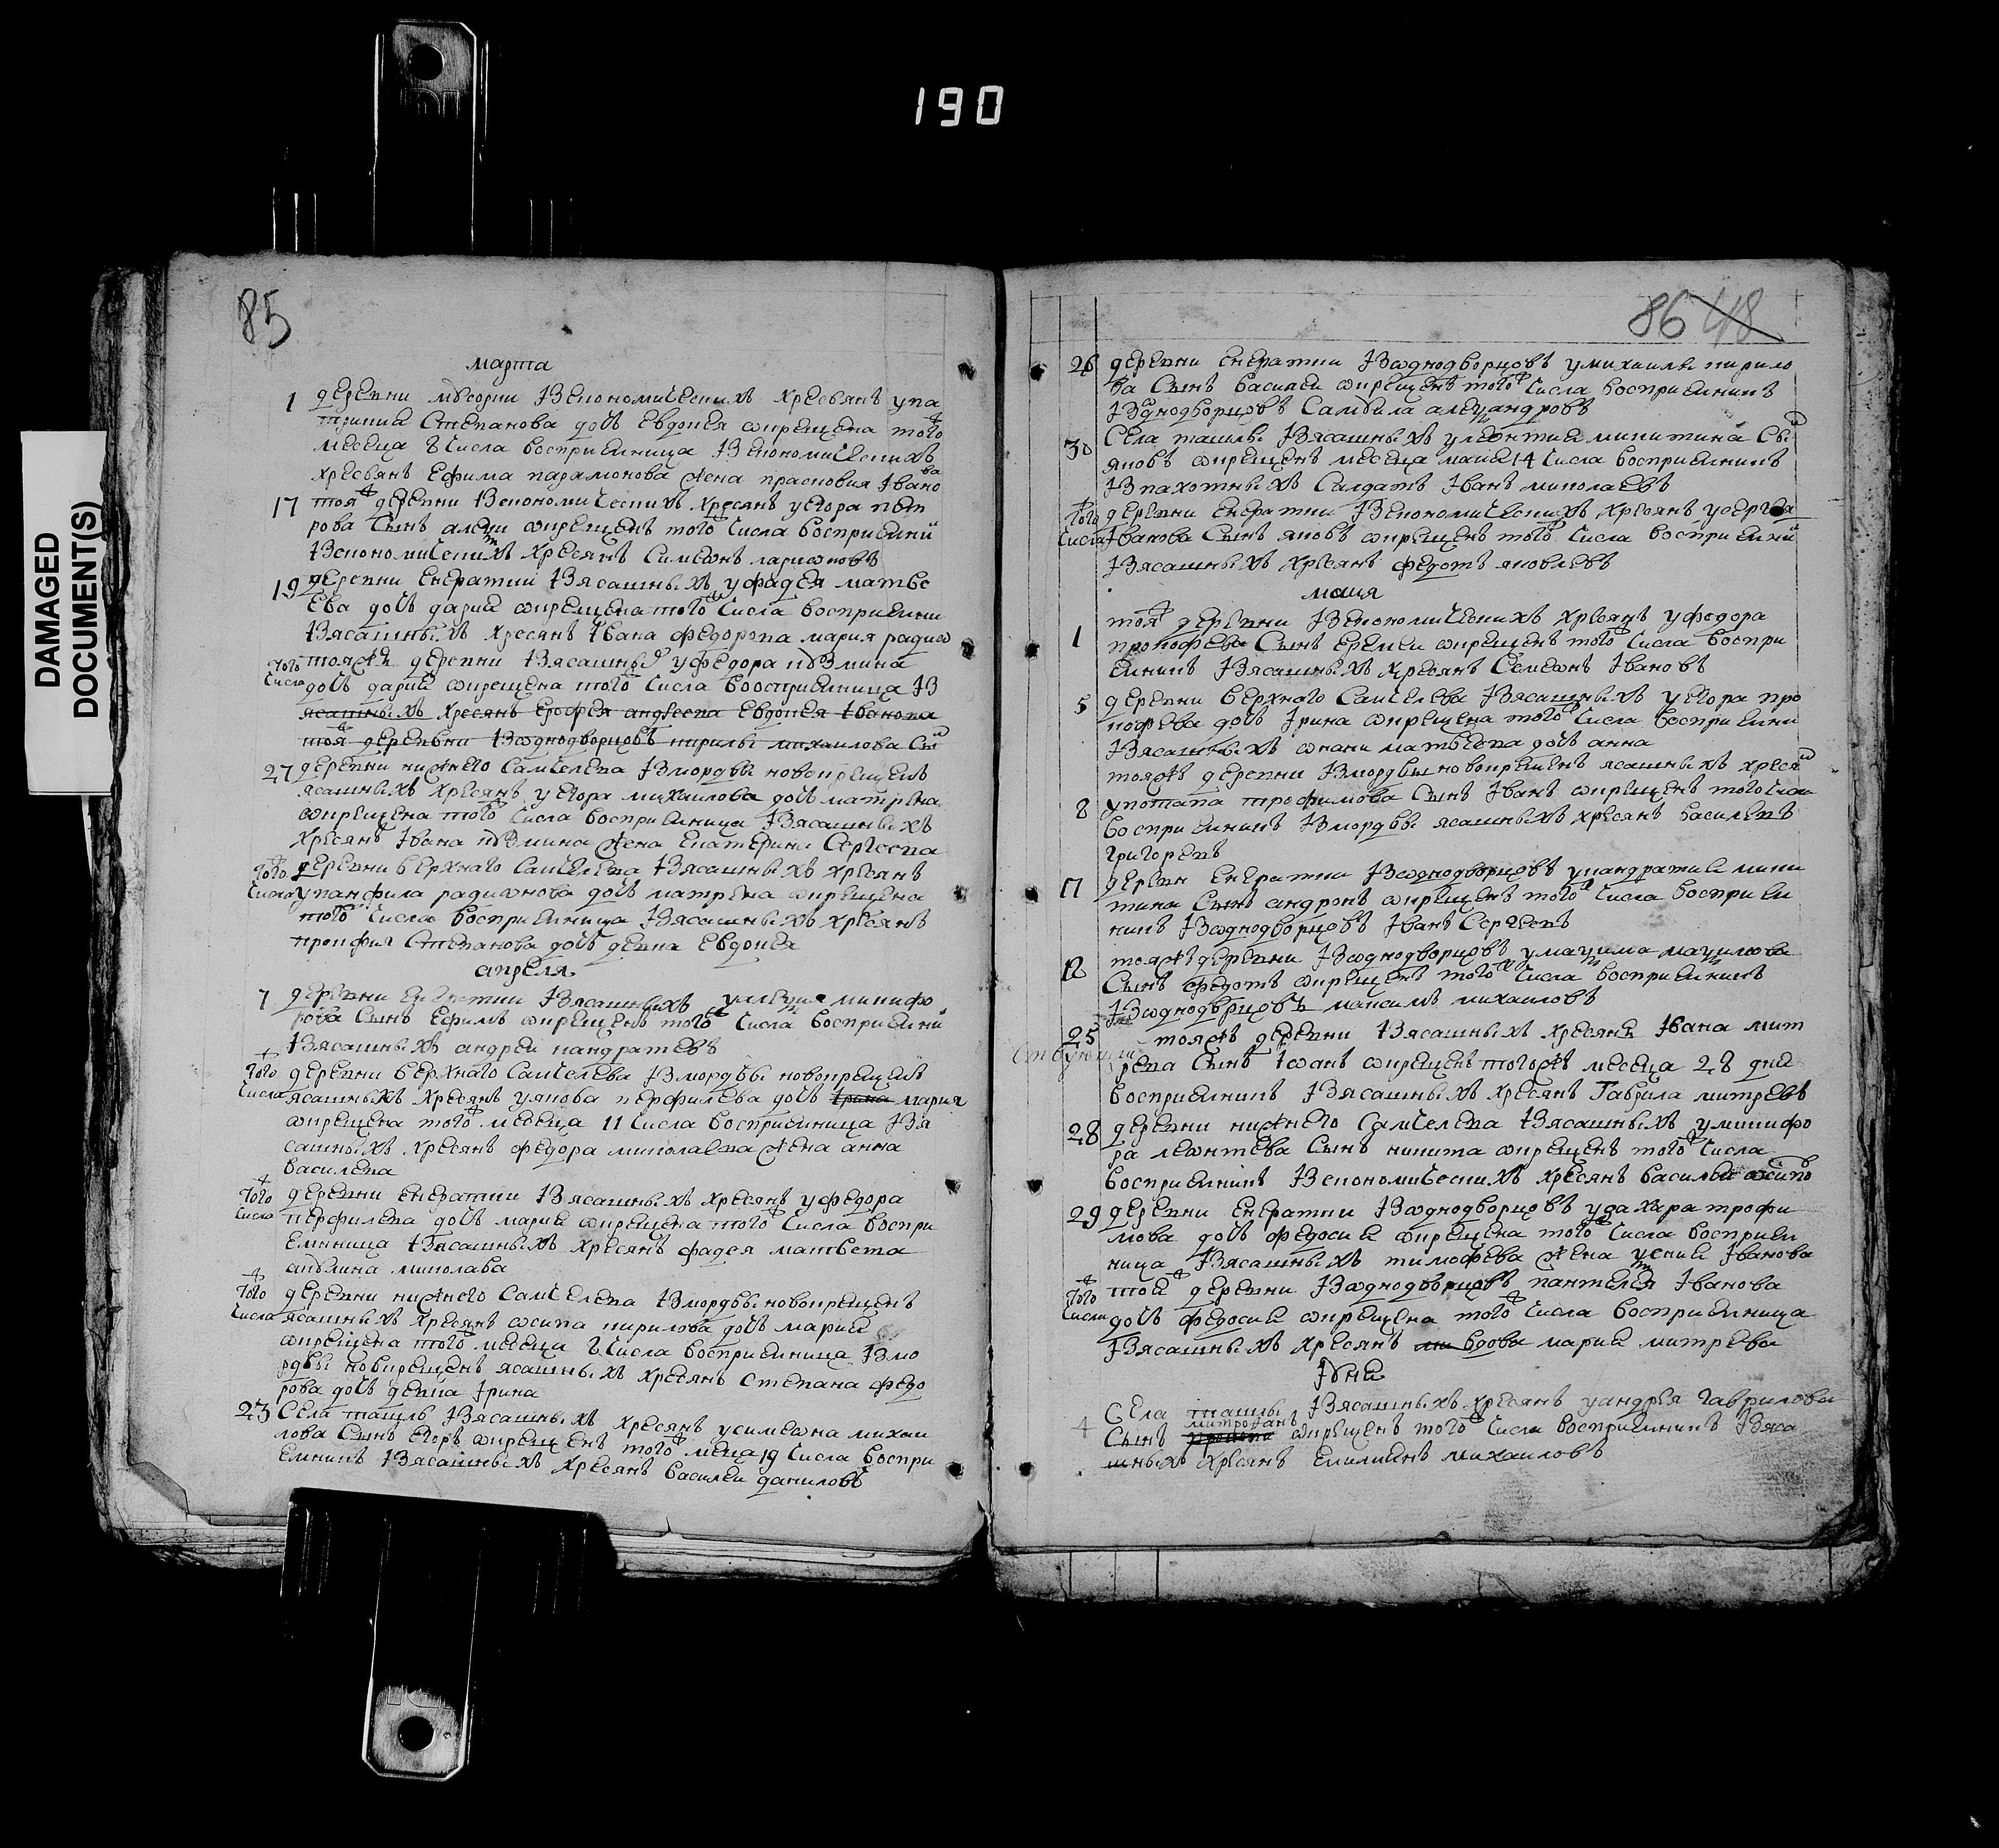 190
DAMAGED
DOCUMENT(S)
85
марта
1 деревни мѣсорки ꙇзекономическихъ хресьянъ упа
трикия степанова дочь евдокея ѡкрещена того ж
месеца 2 числа восприемница ꙇзекономическихъ
хресьянъ ефима парамонова жена прасковия ꙇвано
ва
17 тоя ж деревни ꙇзекономическихъ хресянъ уегора пет
рова сынъ алеѯи ѡкрещенъ того числа восприемни к
ꙇзекономическихъ хресянъ симеѡнъ лариѡновъ
19 деревни екератки ꙇзясашныхъ уфадея матве
ева дочь дария ѡкрещена того ж числа восприемни
ꙇзясашныхъ хресянъ ꙇвана федорова мария радиѡ
того числа тояжъ деревни ꙇзясашных уфедора кѹзмина
дочь дария ѡкрещена того числа воосприемница ꙇз
ясашныхъ хресянъ ерофея андреева евдокея ꙇванова
тоя ж деревьни ꙇзѡднодворцовъ кирилы михаилова сы н
27 деревни нижнего санчелева ꙇзмордвы новокрещенъ
ясашныхъ хресянъ уегора михаилова дочь матрена
ѡкрещена того ж числа восприемница ꙇзясашныхъ
хресянъ ꙇвана кѹзмина жена екатерина сергеева
того ж числа деревни верхнаго санчелева ꙇзясашныхъ хресянъ
упанфила радиѡнова дочь матрена ѡкрещена
того ж числа восприемница ꙇзясашныхъ хресянъ
прокофия степанова дочь девка евдокея
апреля
7 деревни екератки ꙇзясашныхъ уалеѯия никифо
рова сынъ ефимъ ѡкрещенъ того ж числа восприемни к
ꙇзясашныхъ андреи кандратевъ
того ж числа деревни верхнаго санчелева ꙇзмордвы новокрещенъ
ясашныхъ хресянъ уякова перфилева дочь ꙇрина мария
ѡкрещена того ж месеца 11 числа восприемница ꙇзя
сашныхъ хресянъ федора николаева жена анна
василева
того ж числа деревни екератки ꙇзясашныхъ хресянъ уфедора
перфилева дочь мария ѡкрещена того ж числа воспри
емница ꙇзясашныхъ хресянъ фадея матвеева
акѹлина николава
того ж числа деревни нижнего санчелева ꙇзмордвы новокрещенъ
ясашныхъ хресянъ ѡсипа кирилова дочь мария
ѡкрещена того ж месеца 2 числа восприемница ꙇзмо
рдвы новкрещенъ ясашныхъ хресянъ степана федо
рова дочь девка ꙇрина
23 села ташлы ꙇзясашныхъ хресянъ усимеѡна михаи
лова сынъ егоръ ѡкрещенъ того ж меца 19 числа воспри
емникъ ꙇзясашныхъ хресянъ василеи даниловъ
86 418
26 деревни екератки ꙇзѡднодворцовъ умихаилы кирило
ва сынъ василеи ѡкрещенъ того ж числа восприемникъ
ꙇзѡднодворцовъ самоила алеѯандровъ
30 села ташлы ꙇзясашныхъ улеонтия микитина сы н
яковъ ѡкрещенъ месеца маия 14 числа восприемникъ
ꙇзпахотныхъ салдатъ ꙇванъ николаевъ
того ж числа деревни екератки ꙇзекономическихъ хресянъ усергея
ꙇванова сынъ яковъ ѡкрещенъ того числа восприемни к
ꙇзясашныхъ хресянъ федотъ яковлевъ
маия
1 тоя ж деревни ꙇзекономическихъ хресянъ уфедора
прокофева сынъ еремеи ѡкрещенъ того числа воспри
емникъ ꙇзясашныхъ хресянъ семеѡнъ ꙇвановъ
5 деревни верхнаго санчелева ꙇзясашныхъ уегора про
кофева дочь ꙇрина ѡкрещена того ж числа восприемни
ꙇзясашныхъ матвеева дочь анна
тояжъ деревни ꙇзмордвы новокрещенъ ясашныхъ хреся н
8 употапа трофимова сынъ ꙇванъ ѡкрещенъ того числа
восприемникъ ꙇзмордвы ясашныхъ хресянъ василевъ
григоревъ
17 деревн екератки ꙇзѡднодворцовъ укандратия мики
тина сынъ андронъ ѡкрещенъ того ж числа восприем
никъ ꙇзѡднодворцовъ ꙇванъ сергеевъ
12 тояжъ деревни ꙇзѡднодворцовъ умаѯима маѯимова
сынъ федотъ ѡкрещенъ того ж числа восприемникъ
ꙇзѡднодврцовъ максимъ михаиловъ
25 тояжъ деревни ꙇзясашныхъ хресянъ ꙇвана мит
рева сынъ ꙇоанъ ѡкрещенъ тогожъ месеца 28 дня
восприемникъ ꙇзясашныхъ хресянъ гаврила митревъ
28 деревни нижнего санчелева ꙇзясашныхъ уникифо
ра леѡнтева сынъ никита ѡкрещенъ того ж числа
восприемникъ ꙇзекономическихъ хресянъ василеи ѡсипо в
29 деревни екератки ꙇзѡднодворцовъ узахара трофи
мова дочь федосия ѡкрещена того ж числа восприем
ница ꙇзясашныхъ тимофева жена ѯения ꙇванова
того ж числа тоя ж деревни ꙇзѡднодворцовъ пантелея ꙇванова
дочь федосия ѡкрещена того ж числа восприемница
ꙇзясашныхъ хресянъ вдова мария митрева
ꙇюня
4 села ташлы ꙇзясашныхъ хресянъ уандрея гаврилова
сынъ митрофанъ ѡкрещенъ того ж числа восприемникъ ꙇзяса
шныхъ хресянъ емилиянъ михаиловъ